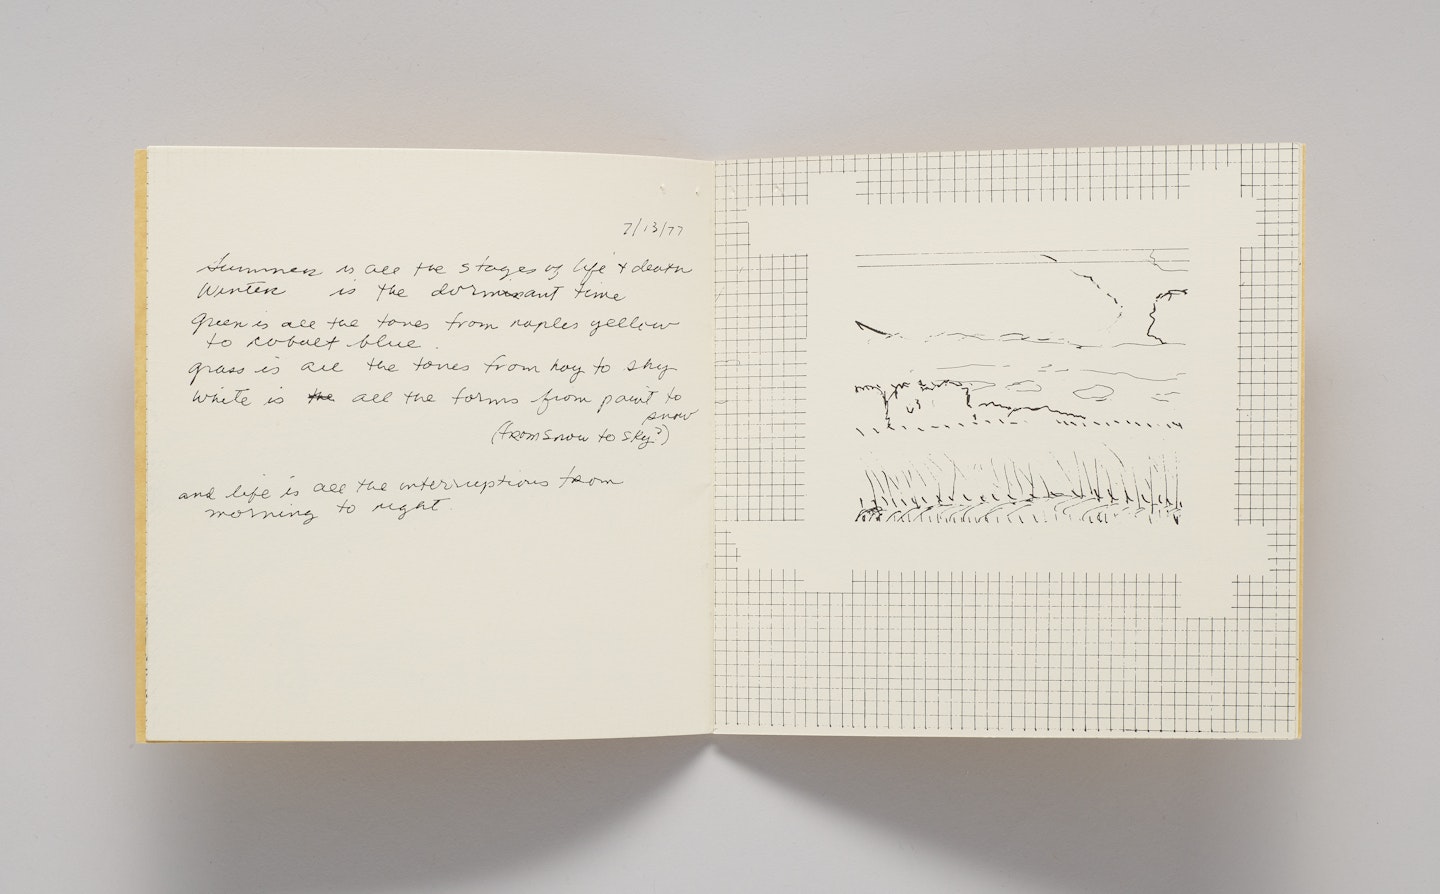 7/13/77
Summer is all the stages of life + death
Winter is the dormant time
Green is all the tones from naples yellow
to cobalt blue.
grass is all the tones from hay to sky
White is the all the forms from paint to
snow
(from snow to sky?)
and life is all the interruptions from
morning to night.